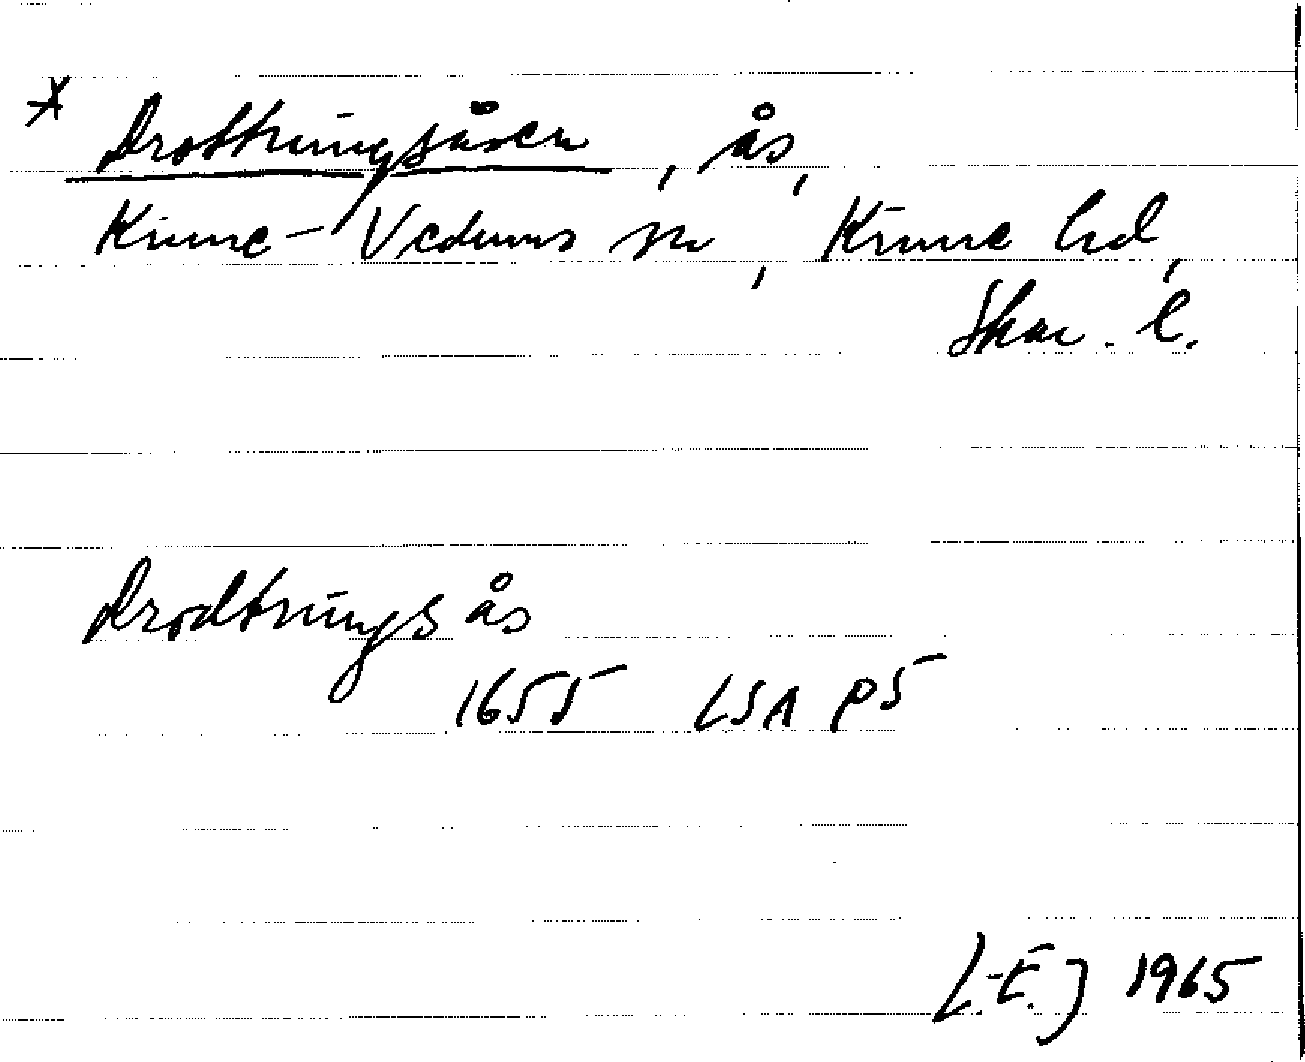 * Drottningsåsen, ås,
Kinne-Vedums sn, Kinne hd,
Skar. l.
Drodtningsås
1655 LSA P5
L.-E. J 1965